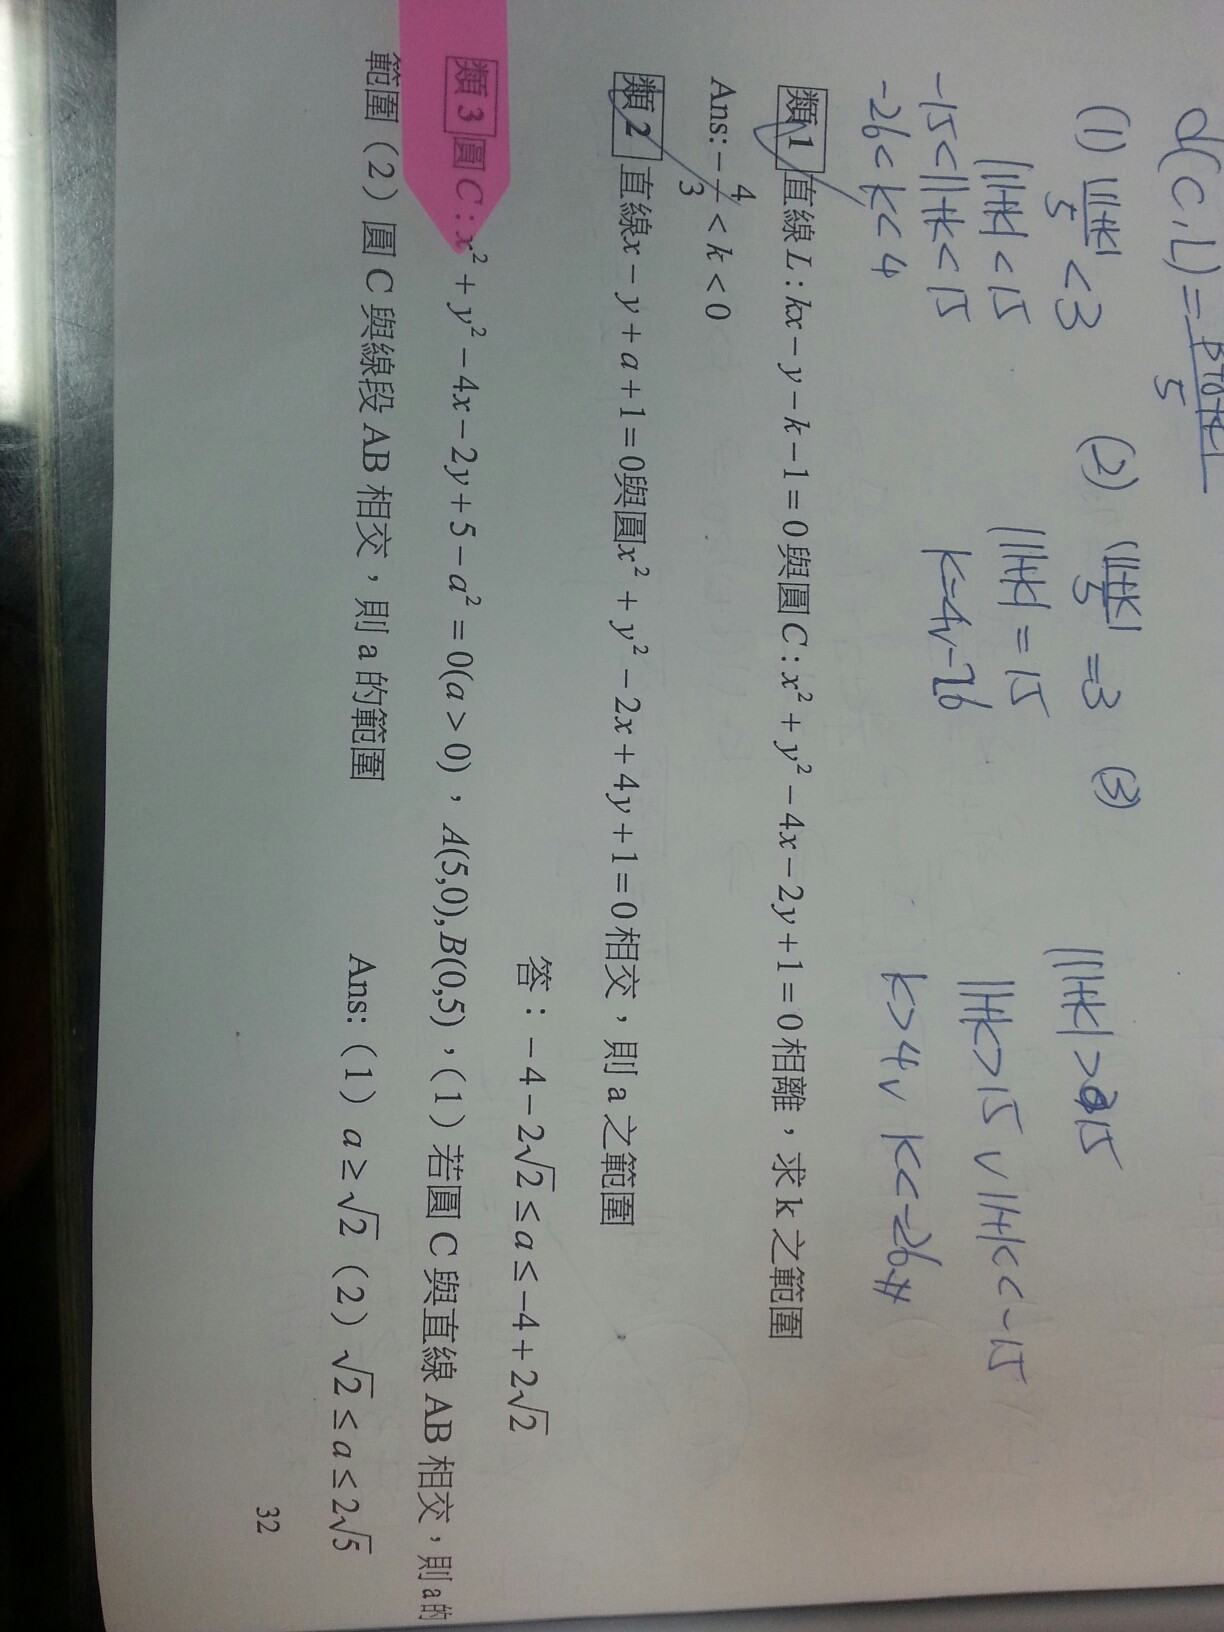 d(C,L)=
5
(1) |11+k|/5 < 3 (2) |11+k|/5 =3 (3)
|11+k| < 15 |11+k| = 15 |11+k| > 15
-15<11+k<15 k=4v-26 11+k>15 v 11+k<-15
-26<k<4 k>4v k<-26#
類1 直線L:kx-y-k-1=0與圓C:x²+y²-4x-2y+1=0相離,求k之範圍
Ans:-4/3<k<0
類2 直線x-y+a+1=0與圓x²+y²-2x+4y+1=0相交,則a之範圍
答:-4-2√2≤a≤-4+2√2
類3 圓C:x²+y²-4x-2y+5-a²=0(a>0),A(5,0),B(0,5),(1)若圓C與直線AB相交,則a的
範圍(2)圓C與線段AB相交,則a的範圍
Ans:(1)a≥√2(2)√2≤a≤2√5
32